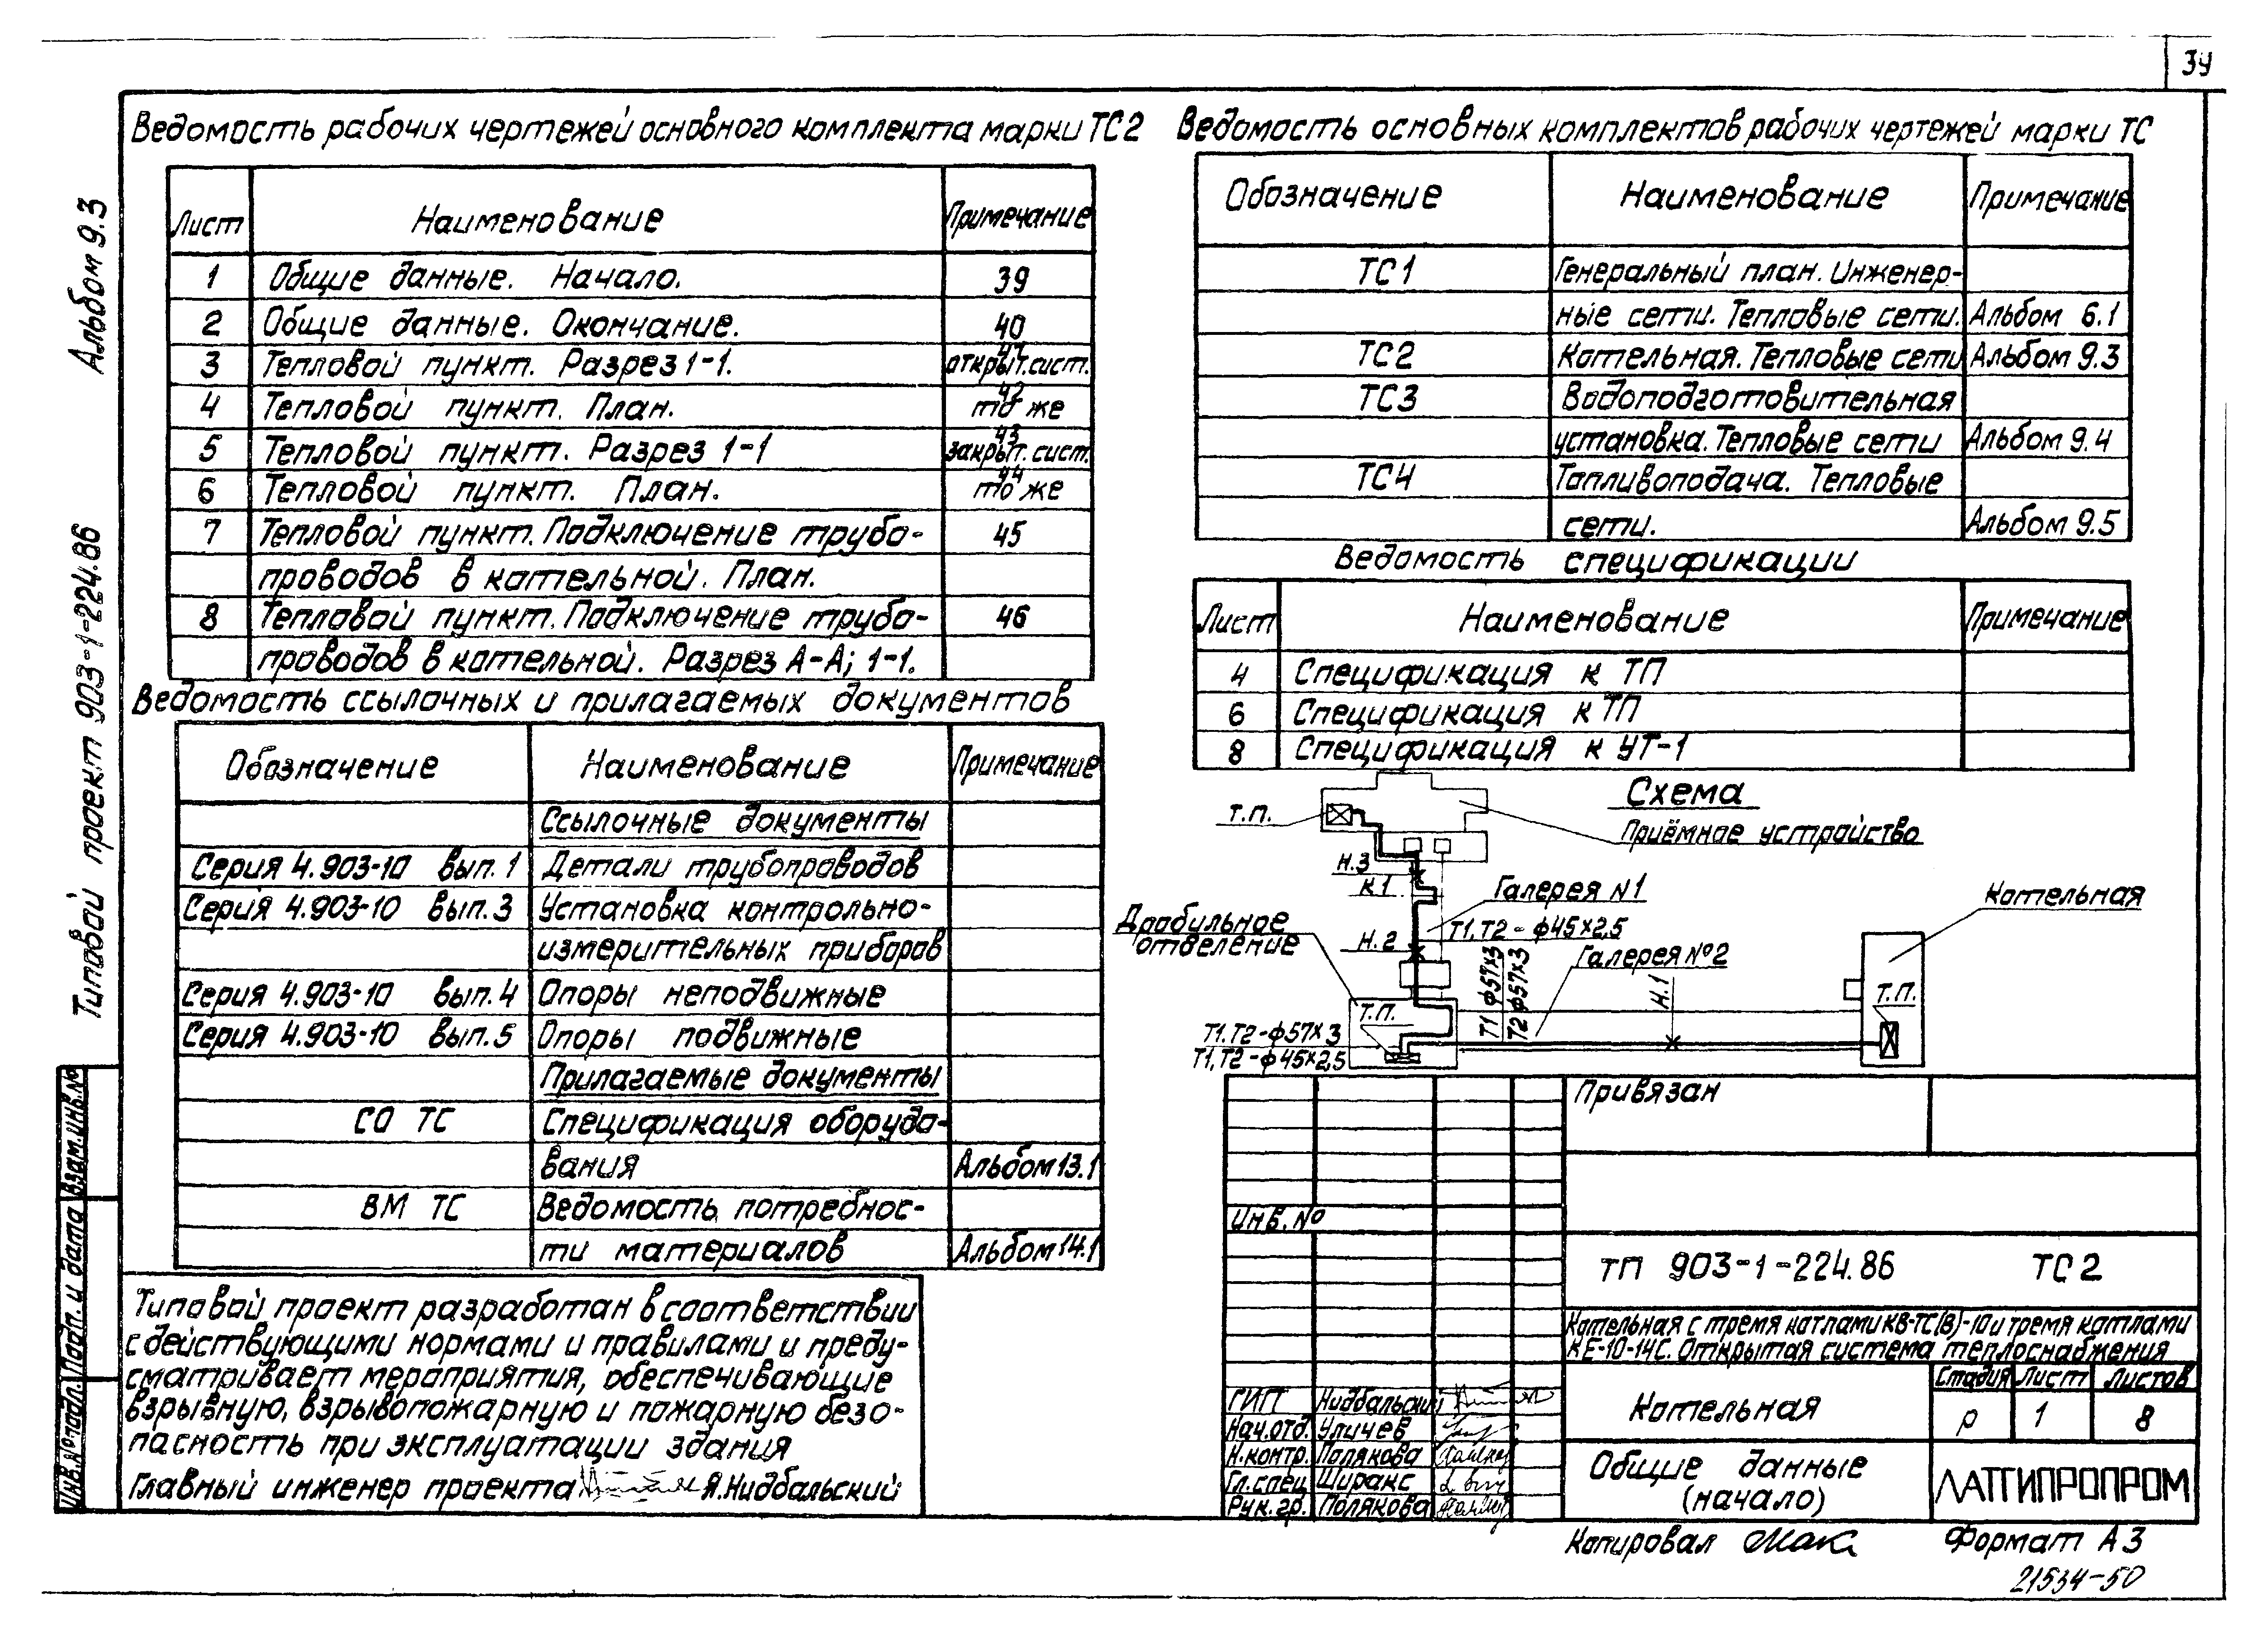 39
Альбом 9.3
Типовой проект 903-1-224.86
Взам.инв.№
Подп. и дата
Инв.№подл.
Ведомость рабочих чертежей основного комплекта марки ТС2
Лист Наименование Примечание
1 Общие данные. Начало. 39
2 Общие данные. Окончание. 40
3 Тепловой пункт. Разрез 1-1. 41 открыт.сист.
4 Тепловой пункт. План. 42 то же
5 Тепловой пункт. Разрез 1-1 43 закрыт.сист.
6 Тепловой пункт. План. 44 то же
7 Тепловой пункт. Подключение трубо- 45
проводов в котельной. План.
8 Тепловой пункт. Подключение трубо- 46
проводов в котельной. Разрез А-А; 1-1.
Ведомость ссылочных и прилагаемых документов
Обозначение Наименование Примечание
Ссылочные документы
Серия 4.903-10 вып. 1 Детали трубопроводов
Серия 4.903-10 вып. 3 Установка контрольно-
измерительных приборов
Серия 4.903-10 вып. 4 Опоры неподвижные
Серия 4.903-10 вып. 5 Опоры подвижные
Прилагаемые документы
СО ТС Спецификация оборудо-
вания Альбом 13.1
ВМ ТС Ведомость потребнос-
ти материалов Альбом 14.1
Типовой проект разработан в соответствии
с действующими нормами и правилами и преду-
сматривает мероприятия, обеспечивающие
взрывную, взрывопожарную и пожарную безо-
пасность при эксплуатации здания
Главный инженер проекта Я.Нидбальский
Ведомость основных комплектов рабочих чертежей марки ТС
Обозначение Наименование Примечание
ТС1 Генеральный план. Инженер-
ные сети. Тепловые сети. Альбом 6.1
ТС2 Котельная. Тепловые сети Альбом 9.3
ТС3 Водоподготовительная
установка. Тепловые сети Альбом 9.4
ТС4 Топливоподача. Тепловые
сети. Альбом 9.5
Ведомость спецификации
Лист Наименование Примечание
4 Спецификация к ТП
6 Спецификация к ТП
8 Спецификация к УТ-1
Схема
Т.П.
Приёмное устройство
Н.3
К.1
Галерея N1
Котельная
Дробильное
отделение
Т1,Т2-ф45×2,5
Н.2
Галерея №2
Т1 ф57×3
Т2 ф57×3
Н.1
Т.П.
Т.П.
Т1.Т2-ф57×3
Т1,Т2-ф45×2,5
Привязан
Инв.№
ТП 903-1-224.86 ТС 2
Котельная с тремя котлами КВ-ТС(В)-10 и тремя котлами
КЕ-10-14С. Открытая система теплоснабжения
Котельная
Стадия Лист Листов
р 1 8
ГИП Нидбальский
Нач.отд. Уличев
Н.контр. Полякова
Гл.спец. Ширакс
Рук.гр. Полякова
Общие данные
(начало)
ЛАТГИПРОПРОМ
Копировал
Формат А3
21534-50